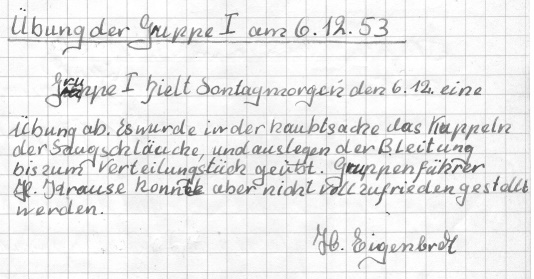 Übung der Gruppe I am 6.12.53
Gruppe I hielt Sontagmorgen den 6.12. eine
Übung ab. Es wurde in der haubtsache das Kuppeln
der Saugschläuche, und auslegen der B.leitung
bis zum Verteilungstück geübt. Gruppenführer
H. Krause konnte aber nicht voll zufrieden gestellt
werden.
H. Eigenbrot